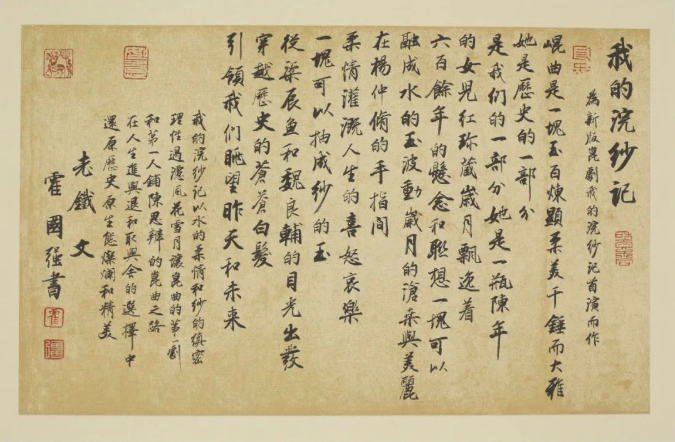 我的浣纱记
为新版崑剧我的浣纱记首演而作
崐曲是一塊玉百煉顯柔美千錘而大雅
她是歷史的一部分
是我们的一部分她是一瓶陳年
的女兒红珎藏歲月飘逸着
六百餘年的懸念和联想一塊可以
融成水的玉波動歲月的滄桑與美麗
在楊仲脩的手指间
柔情灌溉人生的喜怒哀樂
一塊可以抽成紗的玉
從梁辰鱼和魏良輔的目光出發
穿越歷史的蒼蒼白髮
引領我们眺望昨天和未来
我的浣紗记以水的柔情和纱的縝密
理性過濾風花雪月讓崑曲的第一劇
和第一人鋪陳思辯的崑曲之路
在人生進與退和取與舍的選擇中
還原歷史原生態燦爛和精美
老鐵文
霍國强書